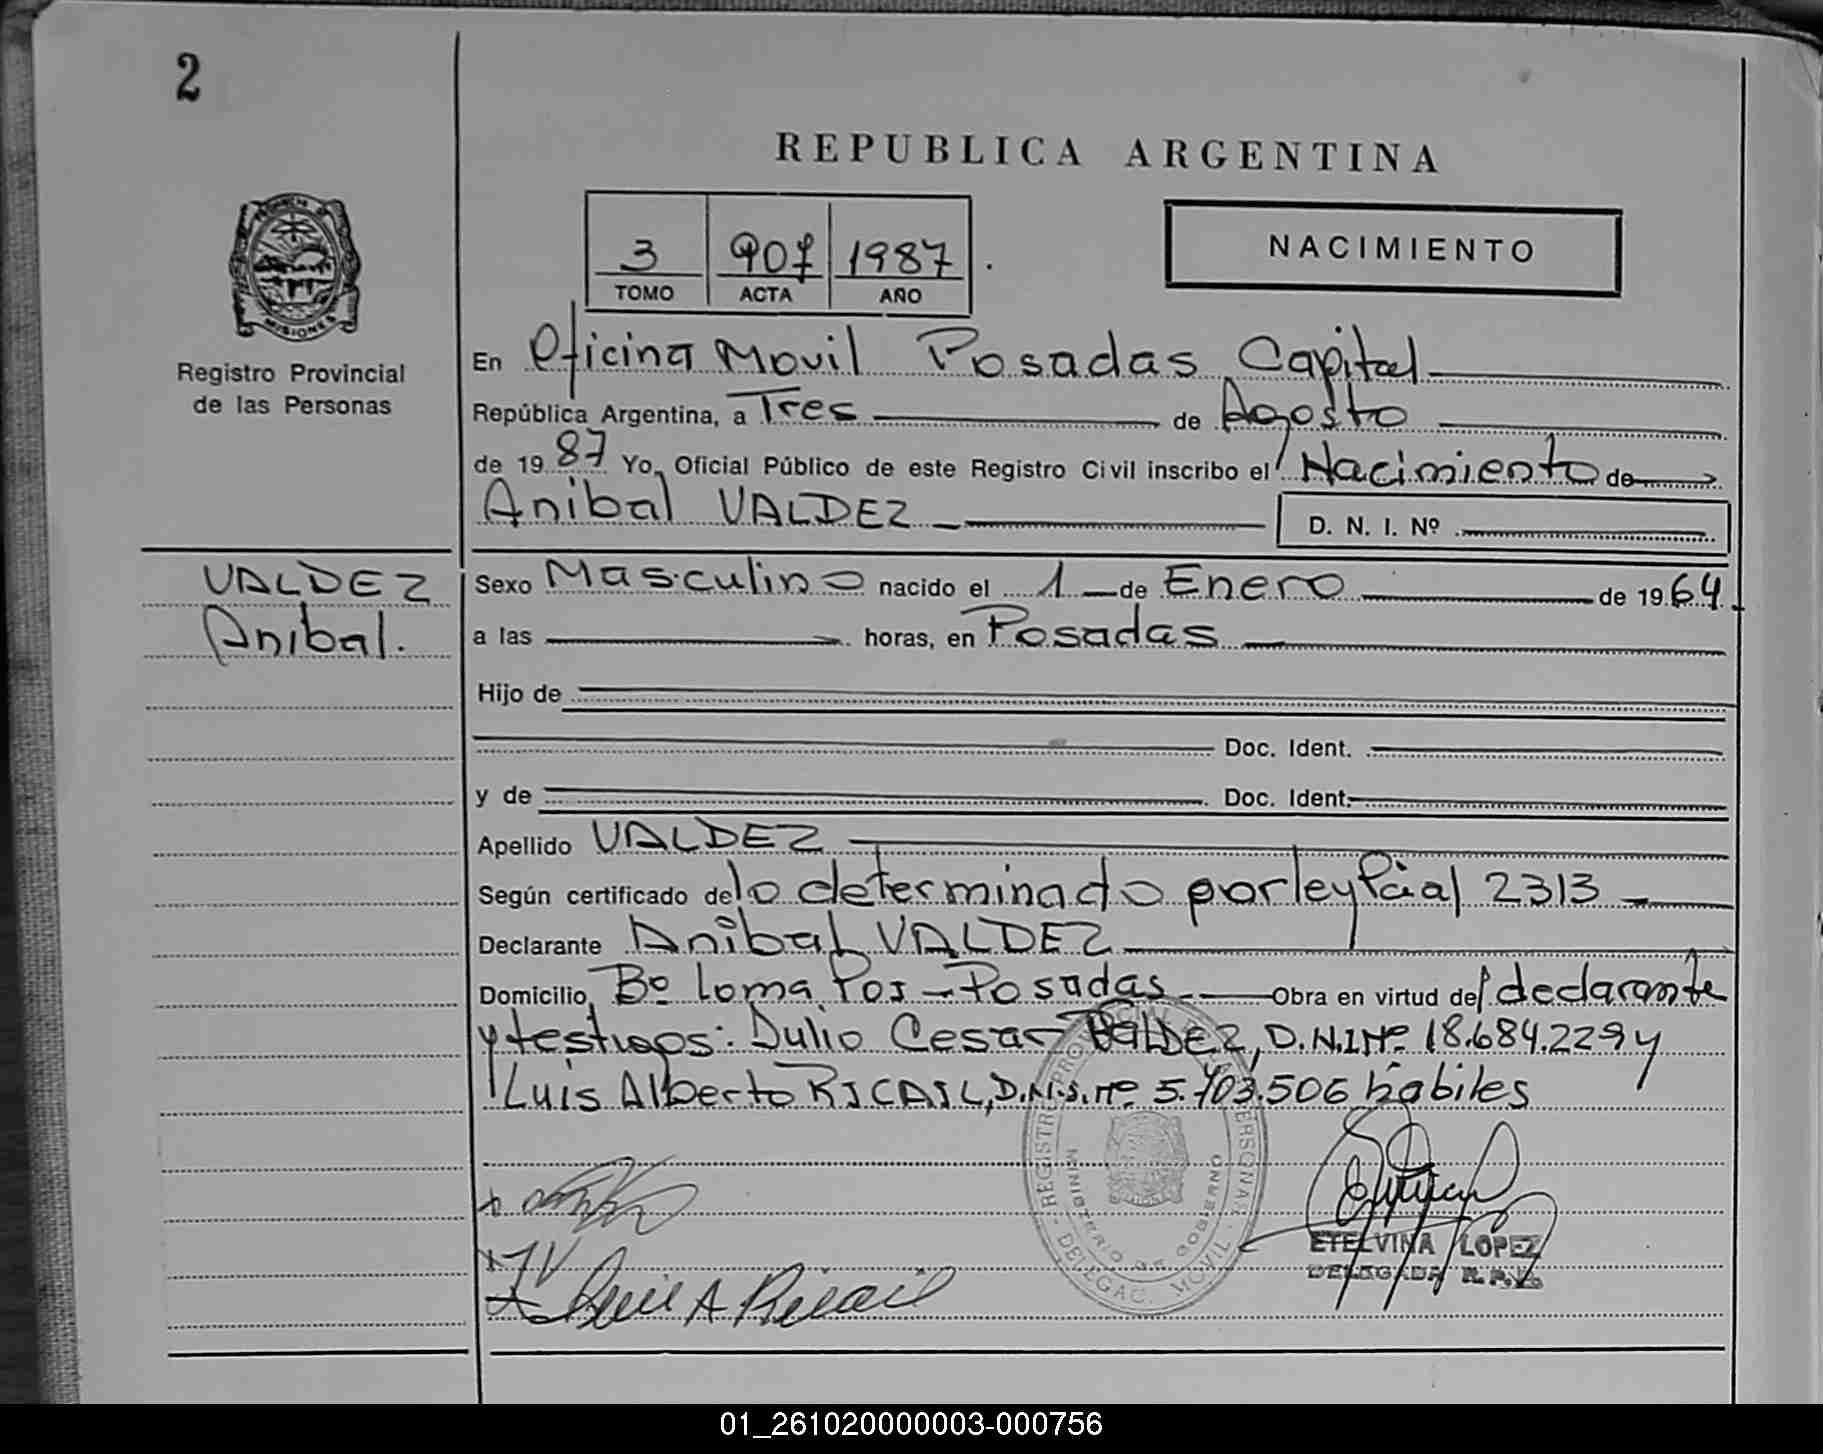 2
REPUBLICA ARGENTINA
3 907 1987
TOMO ACTA AÑO
NACIMIENTO
MISIONES
Registro Provincial
de las Personas
En Oficina Movil Posadas Capital
República Argentina, a Tres de Agosto
de 1987 Yo, Oficial Público de este Registro Civil inscribo el Nacimiento de
Anibal VALDEZ
D. N. I. Nº
VALDEZ
Anibal.
Sexo Masculino nacido el 1 de Enero de 1964
a las horas, en Posadas
Hijo de
Doc. Ident.
y de Doc. Ident.
Apellido VALDEZ
Según certificado de lo determinado por ley Pcial 2313
Declarante Anibal VALDEZ
Domicilio Bº Loma Pos - Posadas Obra en virtud del declarante
y testigos: Julio Cesar VALDEZ, D.N.I Nº 18.684.229 y
Luis Alberto RICAIL, D.N.I. Nº 5.703.506 habiles
REGISTRO PROVINCIAL PERSONAS
MINISTERIO DE GOBIERNO
DELEGAC. MOVIL
JV
Luis A Ricail
ETELVINA LOPEZ
DELEGADA R.P.P.
01_261020000003-000756